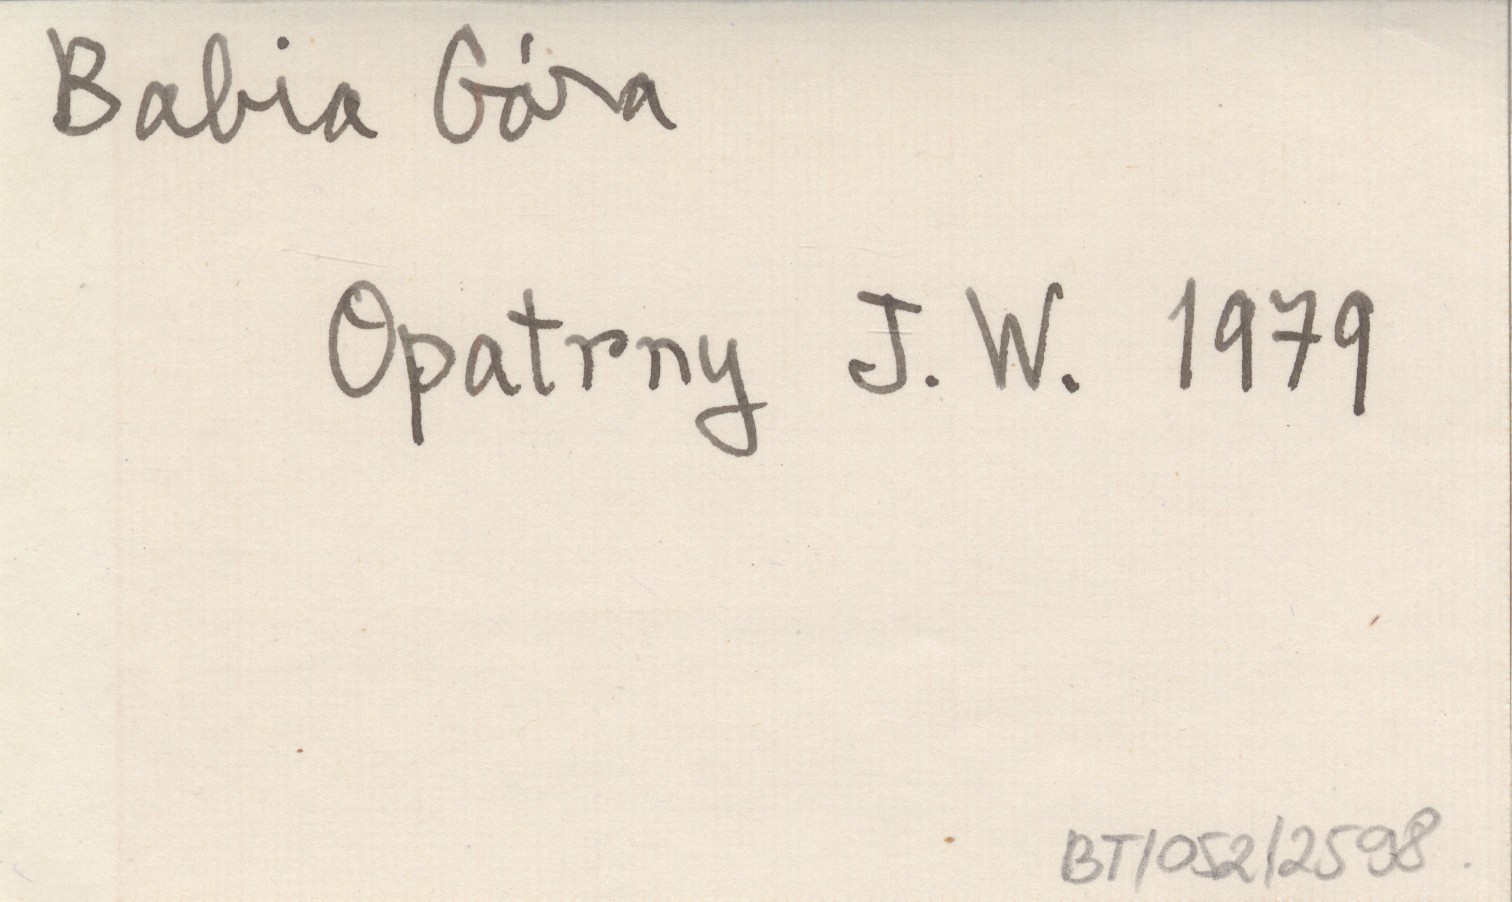 Babia Góra
Opatrny J. W. 1979
BT/052/2598